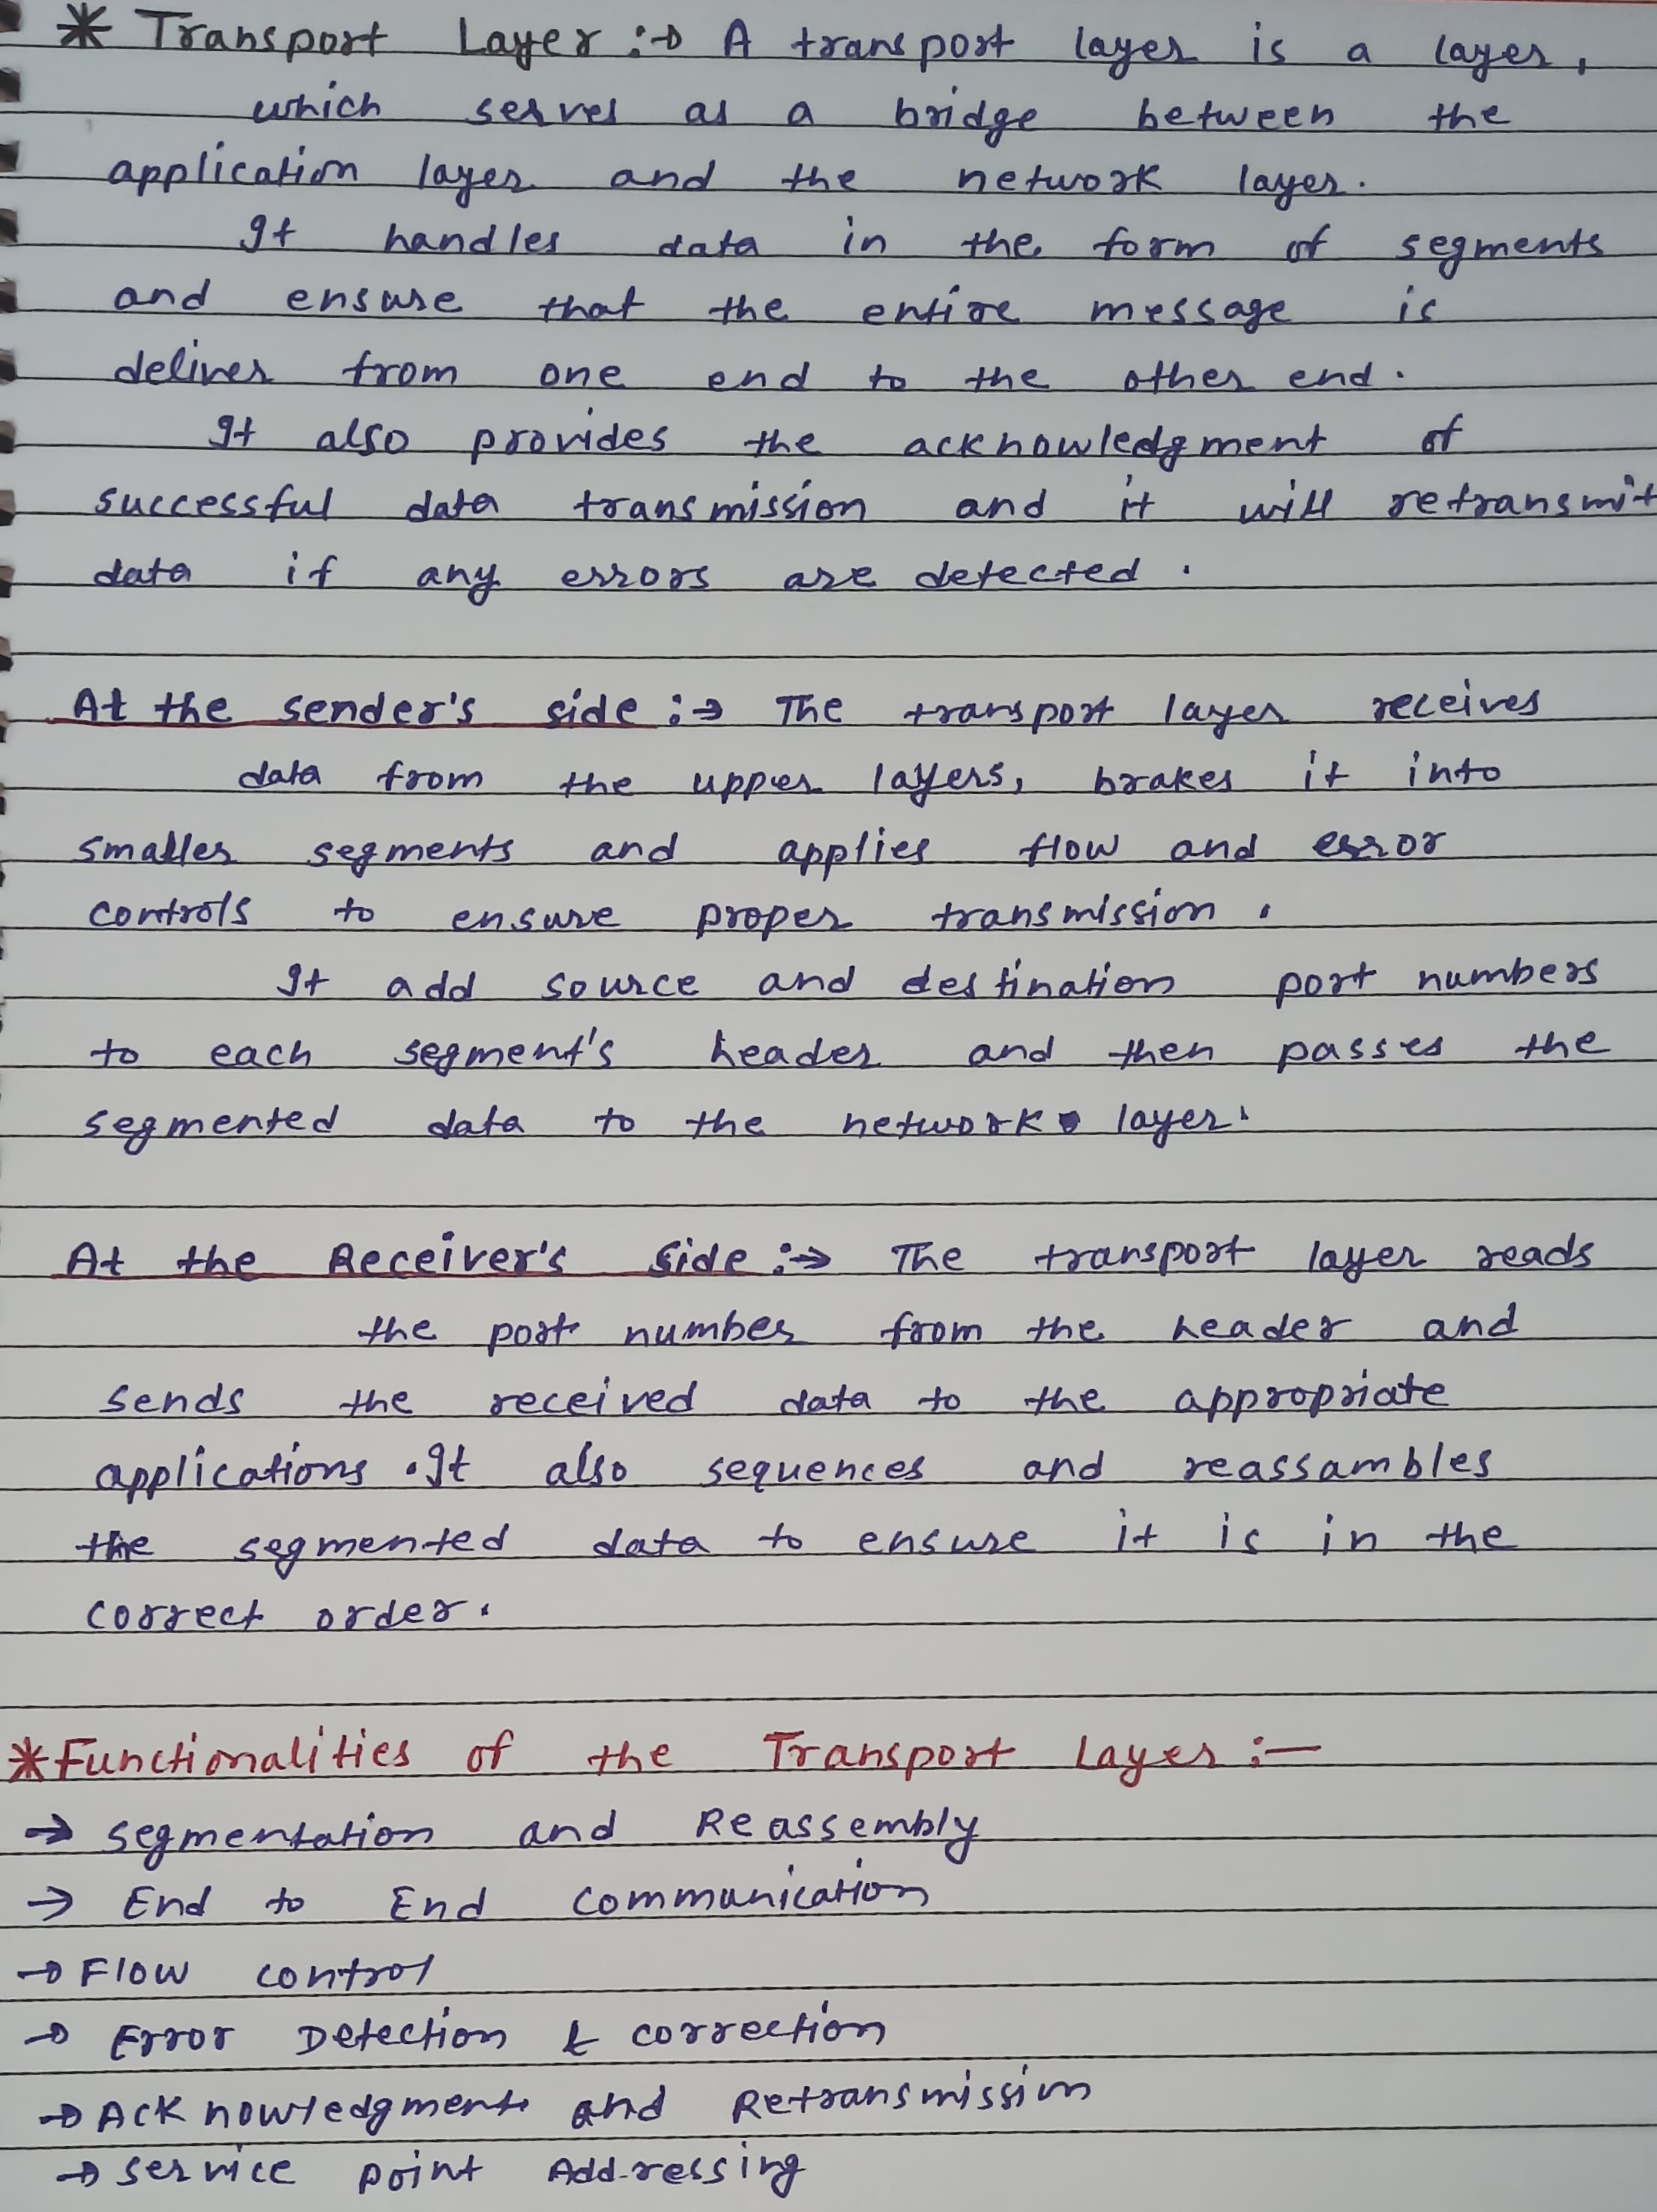 * Transport Layer :→ A transport layer is a layer,
which serves as a bridge between the
application layer and the network layer.
It handles data in the form of segments
and ensure that the entire message is
deliver from one end to the other end.
It also provides the acknowledgment of
successful data transmission and it will retransmit
data if any errors are detected.
At the sender's side :→ The transport layer receives
data from the upper layers, brakes it into
smaller segments and applies flow and error
controls to ensure proper transmission.
It add source and destination port numbers
to each segment's header and then passes the
segmented data to the network layer.
At the Receiver's side :→ The transport layer reads
the port number from the header and
sends the received data to the appropriate
applications. It also sequences and reassambles
the segmented data to ensure it is in the
correct order.
* Functionalities of the Transport Layer :-
→ Segmentation and Reassembly
→ End to End Communication
→ Flow control
→ Error Detection & correction
→ Acknowledgment and Retransmission
→ Service point Addressing